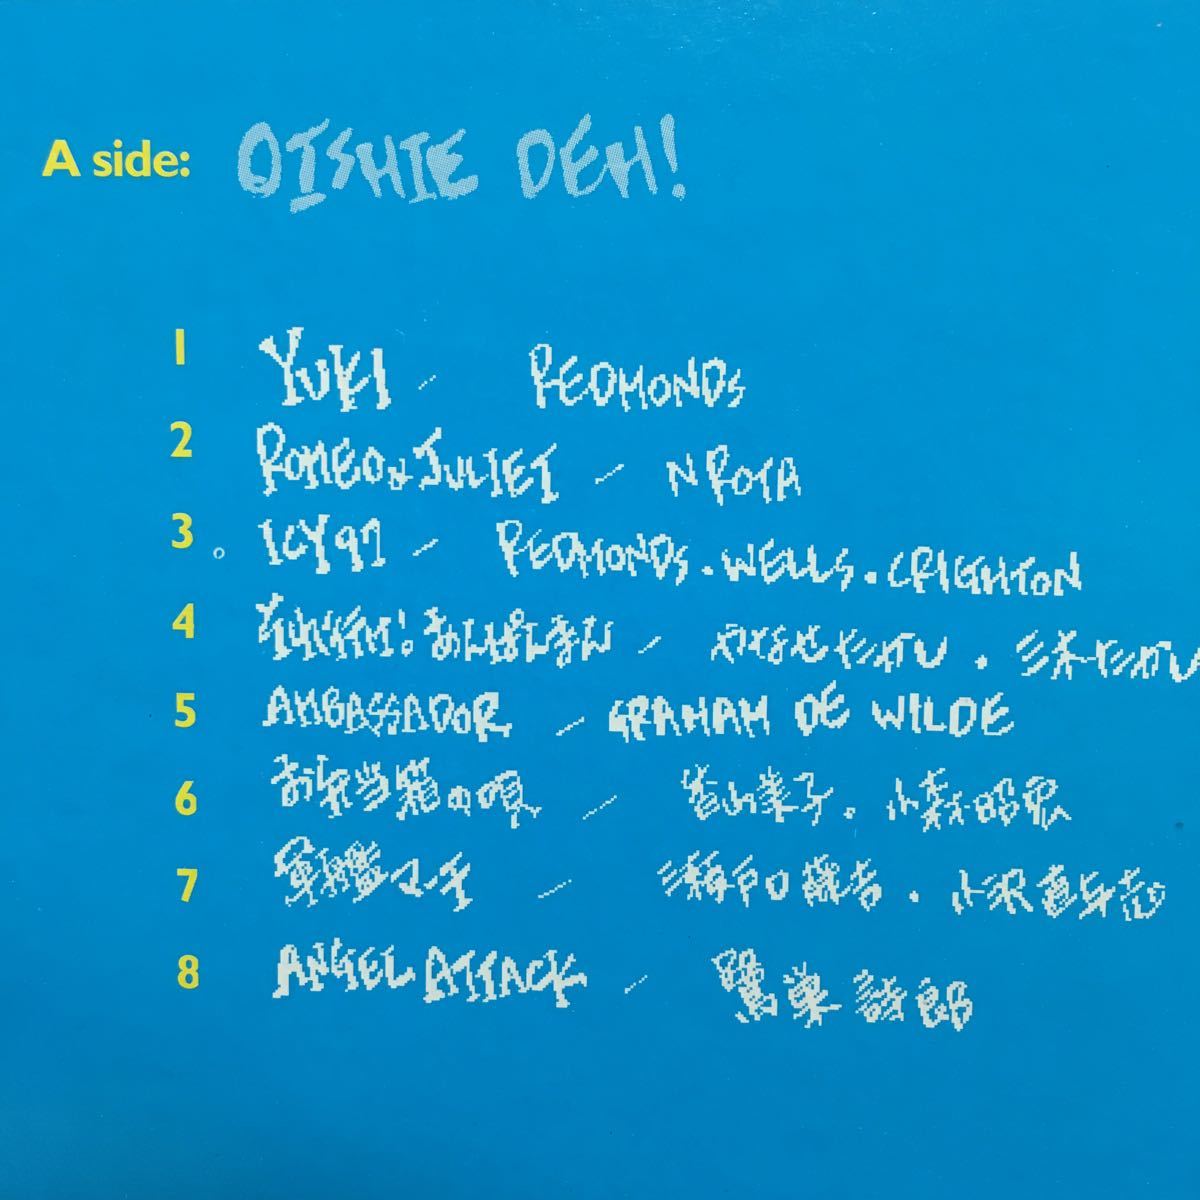 A side: OISHIE DEH!
1 YUKI - REDMONDS
2 ROMEO & JULIET - N ROTA
3 ICY 97 - REDMONDS.WELLS.CRIGHTON
4 それいけ!あんぱんまん - やなせたかし・三木たかし
5 AMBASSADOR - GRAHAM DE WILDE
6 お弁当箱の唄 - 香山美子.小森昭宏
7 軍艦マーチ - 瀬戸口藤吉・小沢直与志
8 ANGEL ATTACK - 鷺巣詩郎